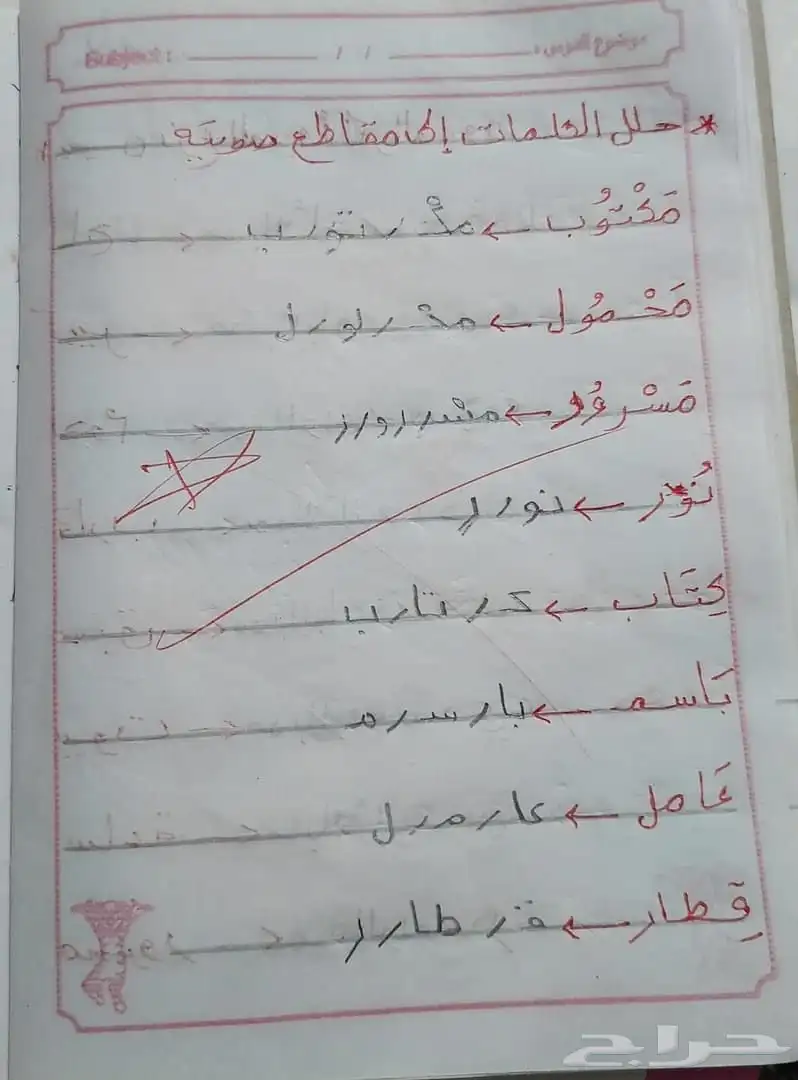 موضوع الدرس : / / Subject :
* حلل الكلمات إلى مقاطع صوتية
مَكْتُوُب ← مكْ / تو / ب
مَحْمُول ← محْ / لو / ل
مَسْرُوُر ← مسْ / رو / ر
نُوْر ← نو / ر
كِتَاب ← كـ / تا / ب
بَاسم ← با / سـ / م
عَامل ← عا / مـ / ل
قِطار ← قـ / طا / ر
حراج